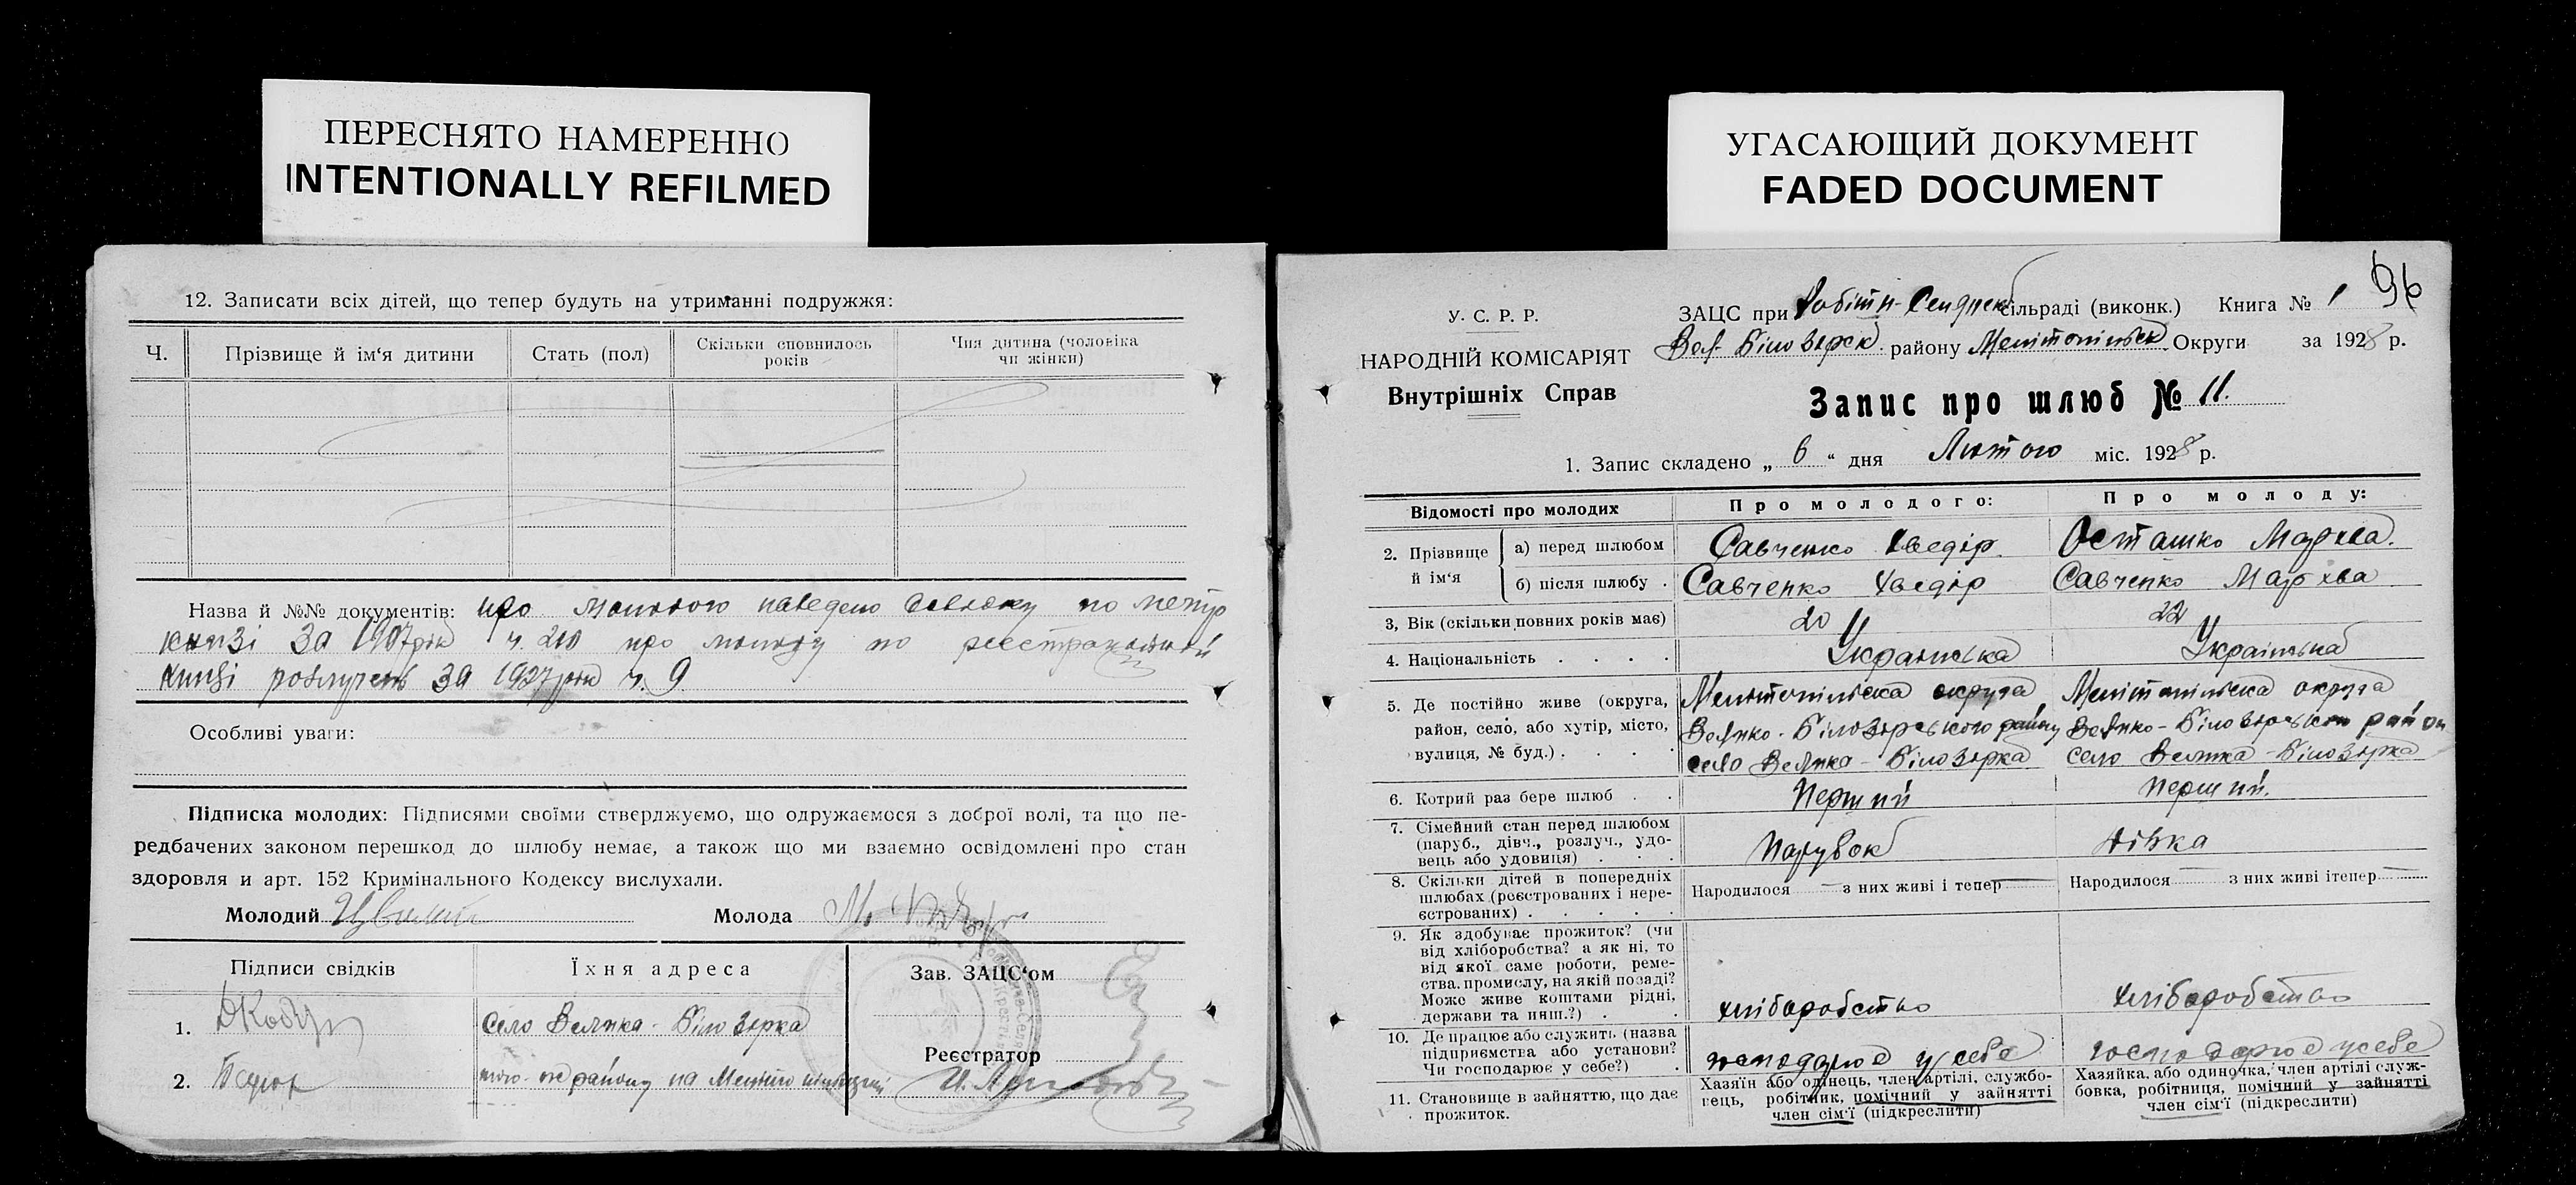 ПЕРЕСНЯТО НАМЕРЕННО
INTENTIONALLY REFILMED
12. Записати всіх дітей, що тепер будуть на утриманні подружжя:
Ч.
Прізвище й ім'я дитини
Стать (пол)
Скільки сповнилось років
Чия дитина (чоловіка чи жінки)
Назва й №№ документів: про молодого наведено довідку по метр
книзі за 1907 рік ч. 210 про молоду по реєстраційній
книзі розлучень за 1927 рік ч. 9
Особливі уваги:
Підписка молодих: Підписями своїми стверджуємо, що одружаємося з доброї волі, та що пе-
редбачених законом перешкод до шлюбу немає, а також що ми взаємно освідомлені про стан
здоровля и арт. 152 Кримінального Кодексу вислухали.
Молодий
Молода
Підписи свідків
Їхня адреса
Зав. ЗАЦС'ом
1.
село Велика-Білозерка
Реєстратор
2.
того-же району на
УГАСАЮЩИЙ ДОКУМЕНТ
FADED DOCUMENT
96
У. С. Р. Р.
НАРОДНІЙ КОМІСАРІЯТ
Внутрішніх Справ
ЗАЦС при сільраді (виконк.) Книга № 1
Вел Білозерск. району Мелітопільськ. Округи за 1928 р.
Запис про шлюб № 11.
1. Запис складено „ 6 “ дня Лютого міс. 1928 р.
Відомості про молодих
Про молодого:
Про молоду:
2. Прізвище й ім'я
а) перед шлюбом
Савченко Хведір.
Осташко Марха.
б) після шлюбу
Савченко Хведір
Савченко Мархва
3, Вік (скільки повних років має)
20
22
4. Національність
Українська
Українська
5. Де постійно живе (округа,
район, село, або хутір, місто,
вулиця, № буд.)
Мелітопільска округа
Велико-Білозерського району
село Велика-Білозерка
Мелітопільска округа
Велико-Білозерського район
село Велика-Білозерка
6. Котрий раз бере шлюб
Перший
Перший.
7. Сімейний стан перед шлюбом
(паруб., дівч., розлуч., удо-
вець або удовиця)
Парубок
дівка
8. Скільки дітей в попередніх
шлюбах (реєстрованих і нере-
єстрованих)
Народилося — з них живі і тепер —
Народилося — з них живі ітепер —
9. Як здобуває прожиток? (чи
від хліборобства? а як ні, то
від якої саме роботи, реме-
ства, промислу, на якій посаді?
Може живе коштами рідні,
держави та инш.?)
хліборобство
хліборобство
10. Де працює або служить (назва
підприємства або установи?
Чи господарює у себе?)
господарює у себе
господарює у себе
11. Становище в зайняттю, що дає
прожиток.
Хазяїн або одінець, член артілі, службо-
вець, робітник, помічний у зайнятті
член сім'ї (підкреслити)
Хазяйка, або одиночка, член артілі служ-
бовка, робітниця, помічний у зайнятті
член сім'ї (підкреслити)